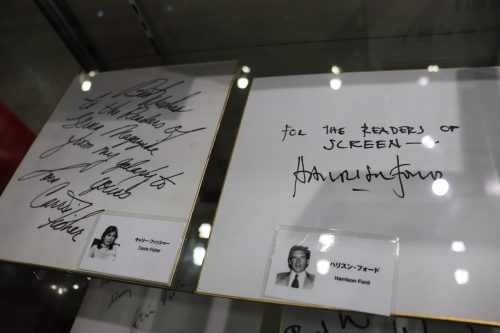 Best Wishes
to the Readers of
Screen Magazine
from my galaxy to
yours
Carrie
Fisher
キャリー・フィッシャー
Carrie Fisher
FOR THE READERS OF
SCREEN
Harrison Ford
ハリスン・フォード
Harrison Ford